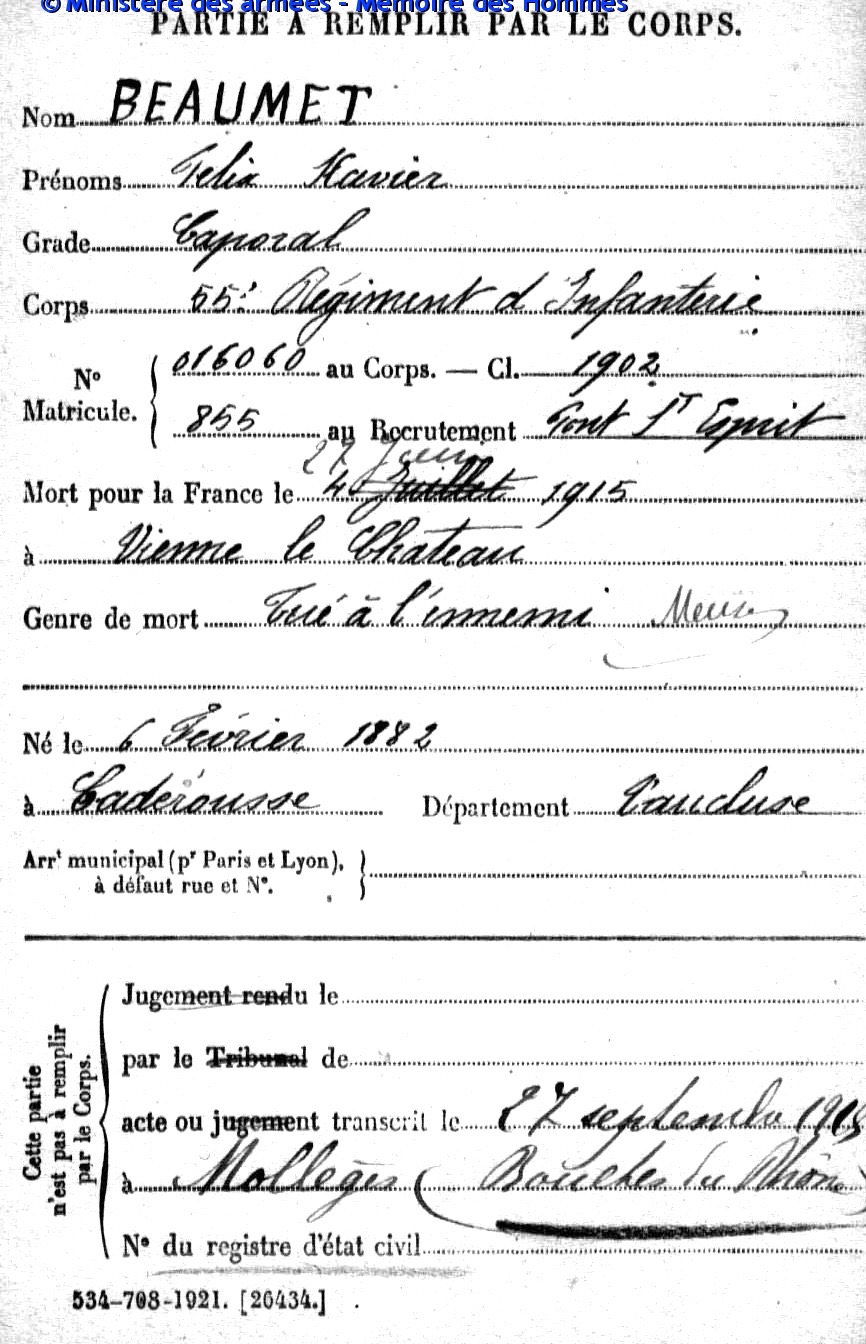 © Ministère des armées - Mémoire des Hommes
PARTIE À REMPLIR PAR LE CORPS.
Nom BEAUMET
Prénoms Felix Xavier
Grade Caporal
Corps 55e Régiment d Infanterie
No Matricule. 016060 au Corps. — Cl. 1902
855 au Recrutement Pont St Esprit
27 Juin
Mort pour la France le 4 Juillet 1915
à Vienne le Chateau
Genre de mort Tué à l'ennemi Meuse
Né le 6 Février 1882
à Caderousse Département Vaucluse
Arrt municipal (pr Paris et Lyon),
à défaut rue et No.
Cette partie
n'est pas à remplir
par le Corps.
Jugement rendu le
par le Tribunal de
acte ou jugement transcrit le 27 septembre 1915
à Mollegès (Bouches du Rhône)
No du registre d'état civil
534-708-1921. [26434.]